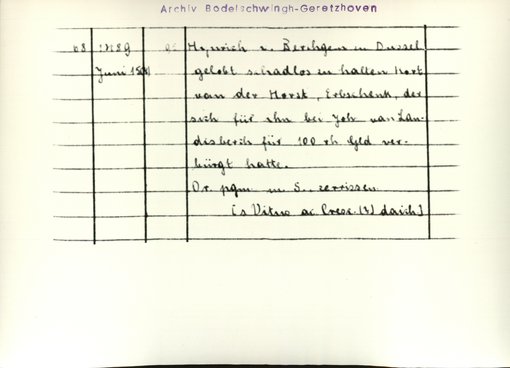 Archiv Bodelschwingh-Geretzhoven
68 1489 Hynrich v. Berchgem zu Dussel
Juni gelobt schadlos zu halten Kort
van der Horst, Erbschenk, der
sich für ihn bei Joh. van Lan-
disberch für 100 rh Gld ver-
bürgt hatte.
Or. pgm m S., zerrissen
[s Vitus ac Cresc. daich]